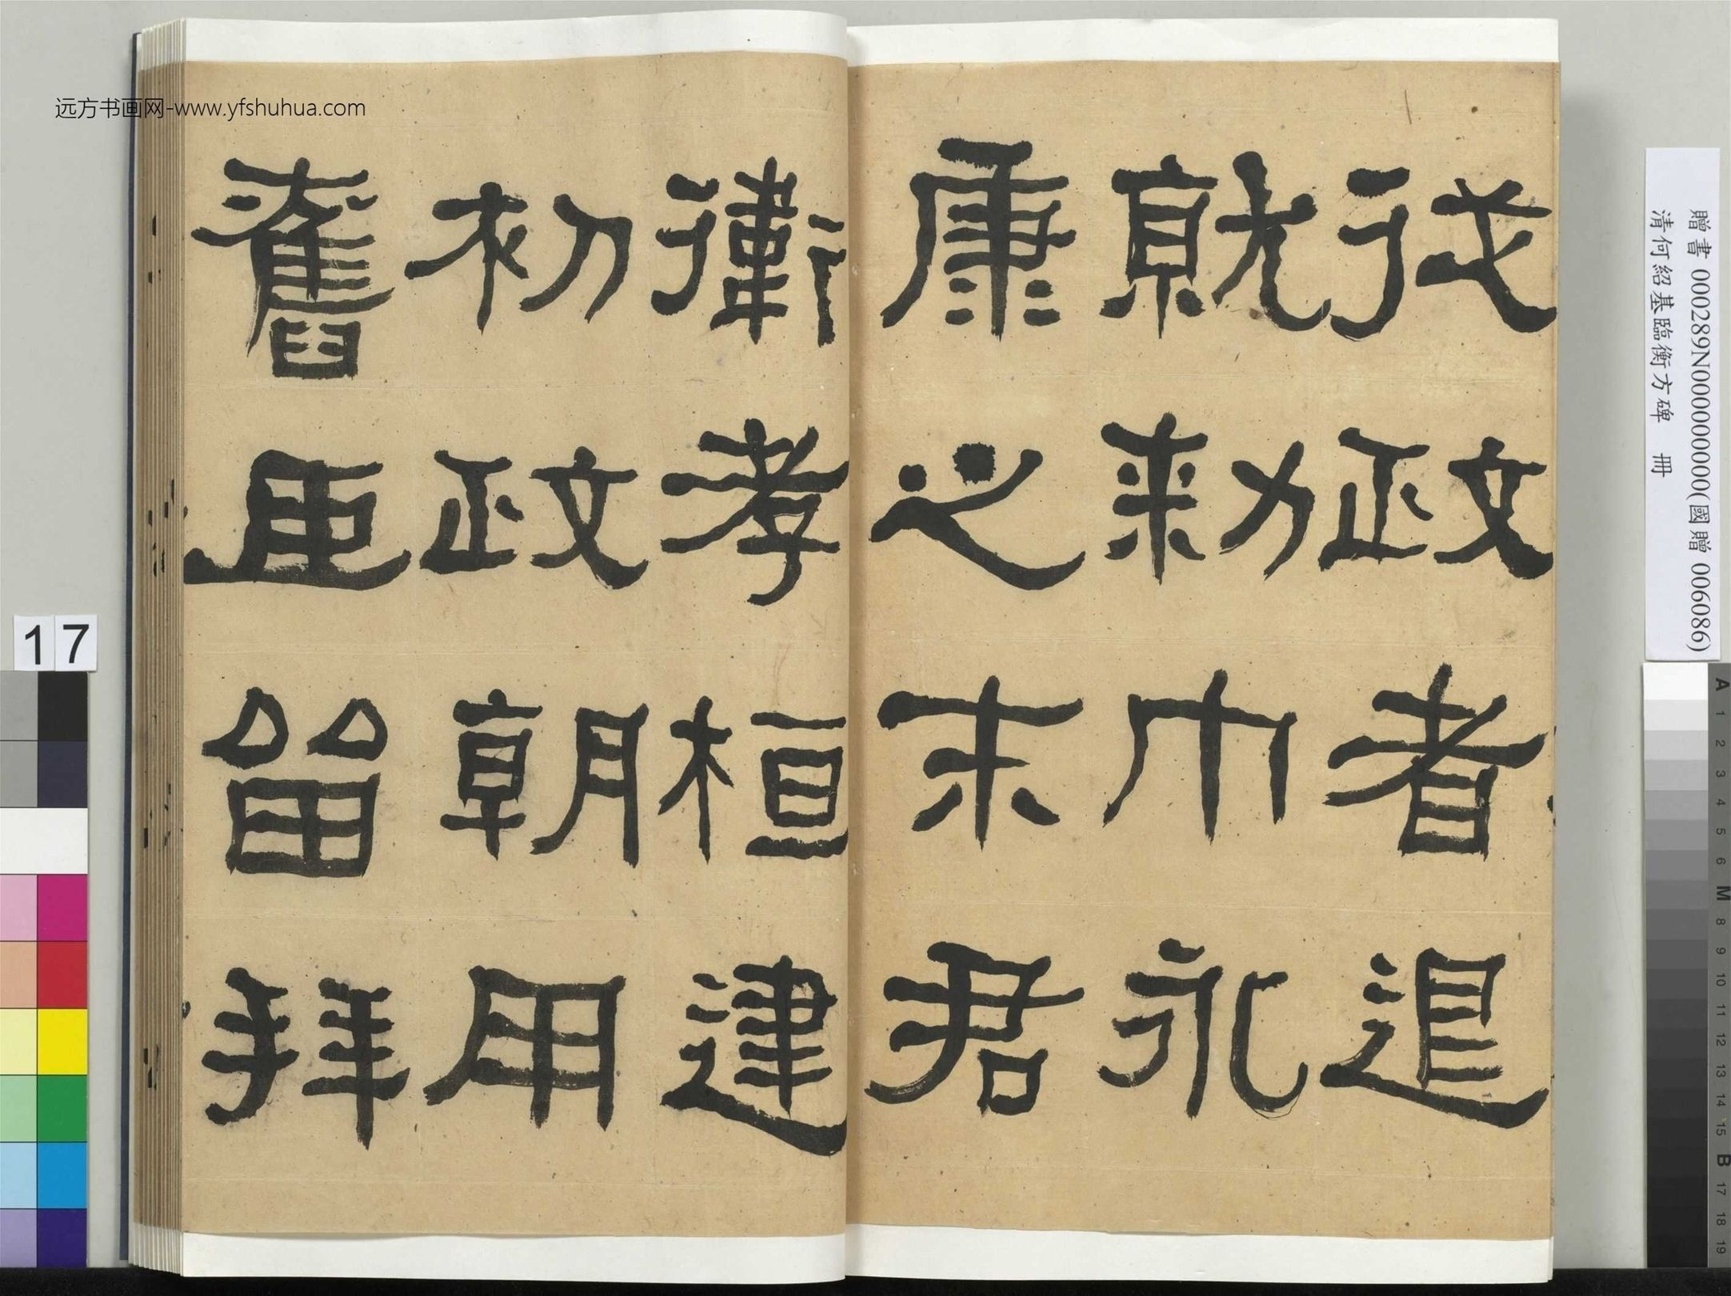 远方书画网-www.yfshuhua.com
從政者退
就勑巾永
康之末君
衛孝桓建
初政朝用
舊臣留拜
贈書 000289N000000000(國贈 006086)
清何紹基臨衡方碑 冊
17
A 1 2 3 4 5 6 M 8 9 10 11 12 13 14 15 B 17 18 19